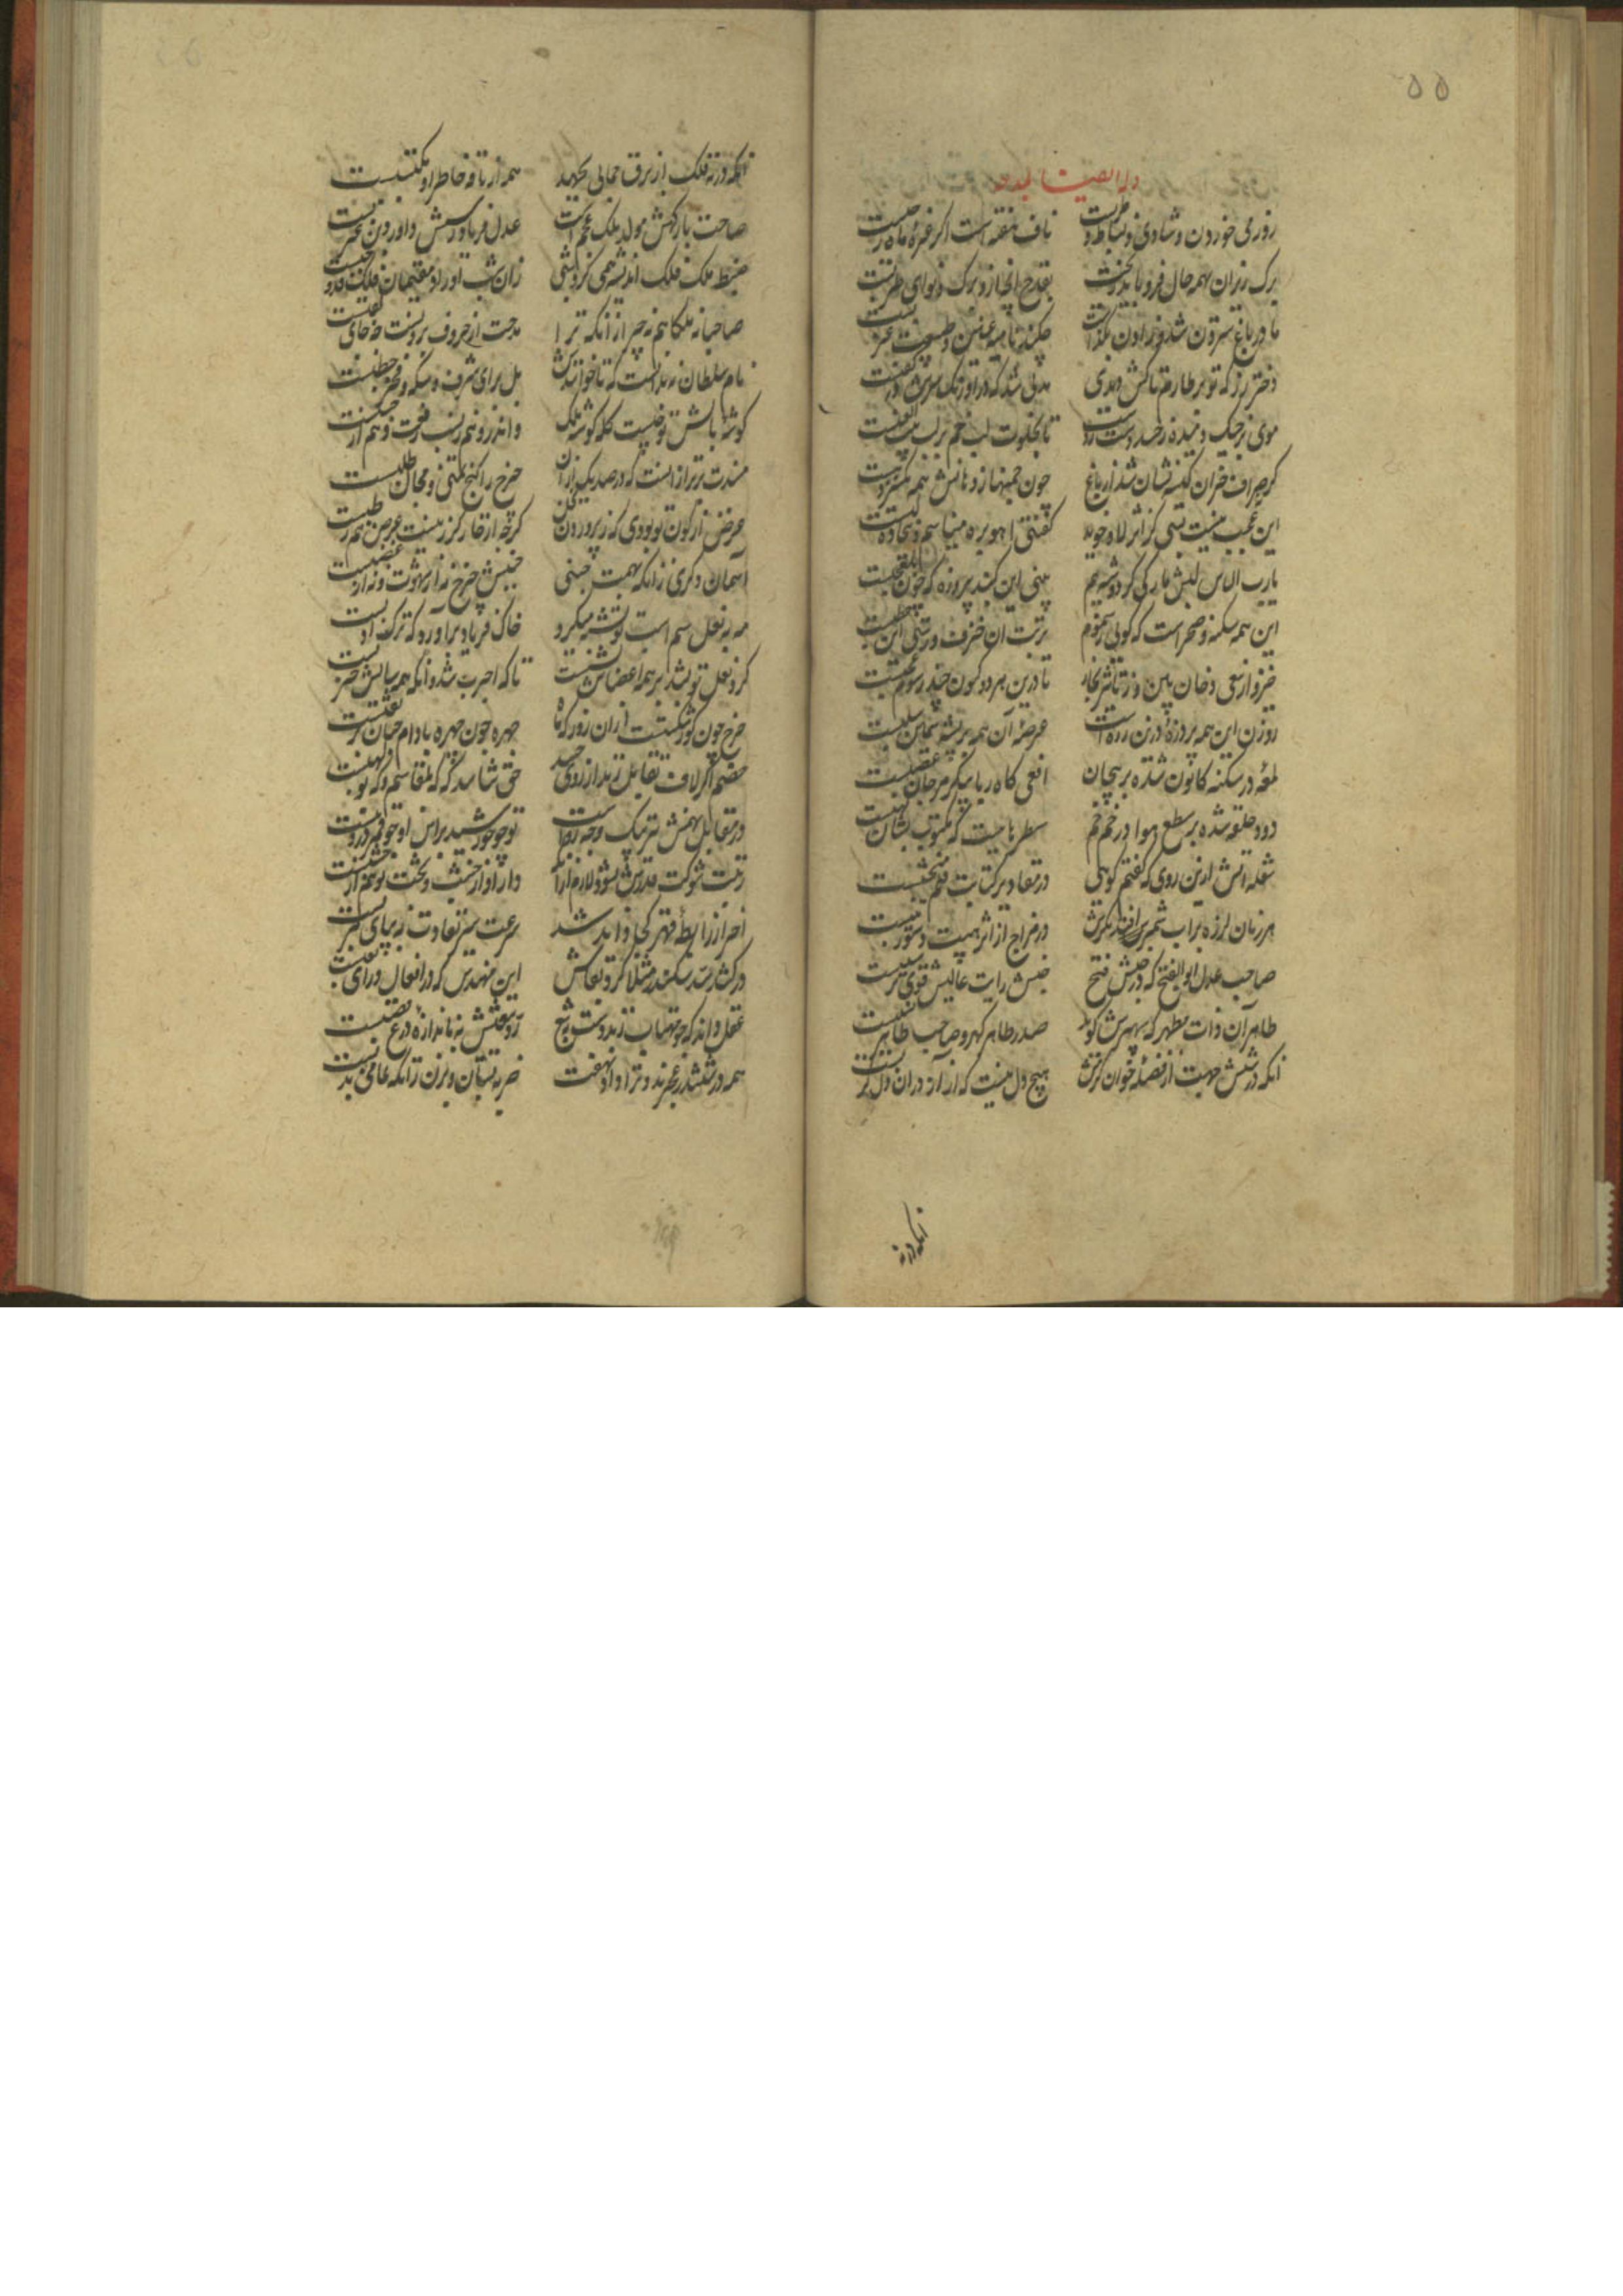 ۵۵
وله ایضا یمدحه
روز می خوردن و شادی و نشاط و طربست ناف هفته است اگر غره ماه رجبست
برک ریزان بهمه حال فرو باید ریخت بقدح انچ از و برک و نوای طربست
مادر باغ سترون شد و زادن بگذاشت چکند نامیه عنین و طبیعت عزبست
دختر رز که تو بر طارم تاکش دیدی مدتی شد که در اونک سرش در کنبست
موی بر خیک دمیده ز حسد دست زد تا بخلوت لب خم بر لب بنت العنبست
کر صراف خزان کیسه فشان شد در باغ چون چمنها ز و بانش همه یکسر ذهبست
این عجب نیست بسی کز اثر لاله و خوید گفتی اهو بره مینا سم و بیجاده لبست
یارب الماس لبش باز کی کرد و شبه سم پنی این گنبد پیروزه که چون بلعجبست
این همه سکنه و صحر است که گوئی سموم تربت ان خزف و رستنی این حطبست
خیز و از سعی دخان بین و ز تاثیر بخار تا درین هر دو کنون چند رسوم عجبست
روزن این همه پر ذره زرین زره است عرصه آن همه پر پشه سیمین سلبست
لمعه در سکنه کانون شده بر خود پیچان افعی کاه ربا پیکر مرجان عصبست
دود حلقه شده بر سطح هوا خم در خم سطرهائیست که مکتوب بنان لهبست
شعله اتش ازین روی که گفتم گوئی در مقادیر کتابت قلم منتجبست
هر زمان لرزه بر اب شمر افتد مگرش در مزاج از اثر هیبت دستور تبست
صاحب عادل ابوالفتح که در جنبش فتح جنبش رایت عالیش قوی تر سببست
طاهر آن ذات مطهر که سپهرش گوید صدر طاهر گهر و صاحب طاهر نسبست
انکه در شش جهت از فضله خوان کرمش هیچ دل نیست که از آز در ان دل کربست
انکه در
انکه در نه فلک از برق کمالی بجهید همه از بارقه خاطر او مکتسبست
صاحب بارکهش مولد ملک عجم است عدل فریاد رسش داور دین عربست
ضبط ملک فلک اندیشه همی کرد شبی زان شب اوراد مقیمان فلک قد وجبست
صاحبا نه ملکا هم نه چرا زانکه ترا مدحت از حروف برونست چه جای لقبست
نام سلطان نه بدانست که تا خوانندش بل برای شرف سکه و فخر خطبست
گوشه بالش تو چیست کله گوشه ملک واندرو هم ز نسب رفعت و هم از حسبست
مسندت برتر از انست که در صد یک از ان چرخ را گنج تمنی و مجال طلبست
غرض از کون تو بودی که ز پروردن نخل گرچه از خار گذر نیست غرض هم رطبست
آسمان دگری زانکه بهمت جنبی جنبش چرخ نه از شهوت و نه از غضبست
مه نه از نعل سم اسب تو تشبیه میکرد خاک فریاد برآورد که ترک ادبست
کرد نعل تو بشد بر همه اعضاش نشست تا که اجرب شد و انک همه سالش جربست
چرخ چون گوز شکست از ان روز که ماه چهره چون چهره بادام جبان پر ثقبست
خصم اگر لاف تقابل زند از روی حسد حق شناسد که که بلقاسم و که بولهبست
در مقابل نهمش نیز بیک وجه رواست تو چو خورشید براس او چو قمر در ذنبست
زینت شوکت قدرش نشود لازم ازانک دار او از خشب و تخت تو هم از خشبست
احتراز از رابطه قهر تو کجا داند شد سرعت سیر تقادیر نه بپای هربست
در گذر از سکندر مثلا گرد نعاش این مهندس که در افعال ورای تعبست
عقل داند که چو مهتاب زند دست بتیغ رد تیغش نه باندازه درع قصبست
همه در ششدر عجزند و ترا داو نهفت ضربه بستان و بزن زانکه تمامی ندبست